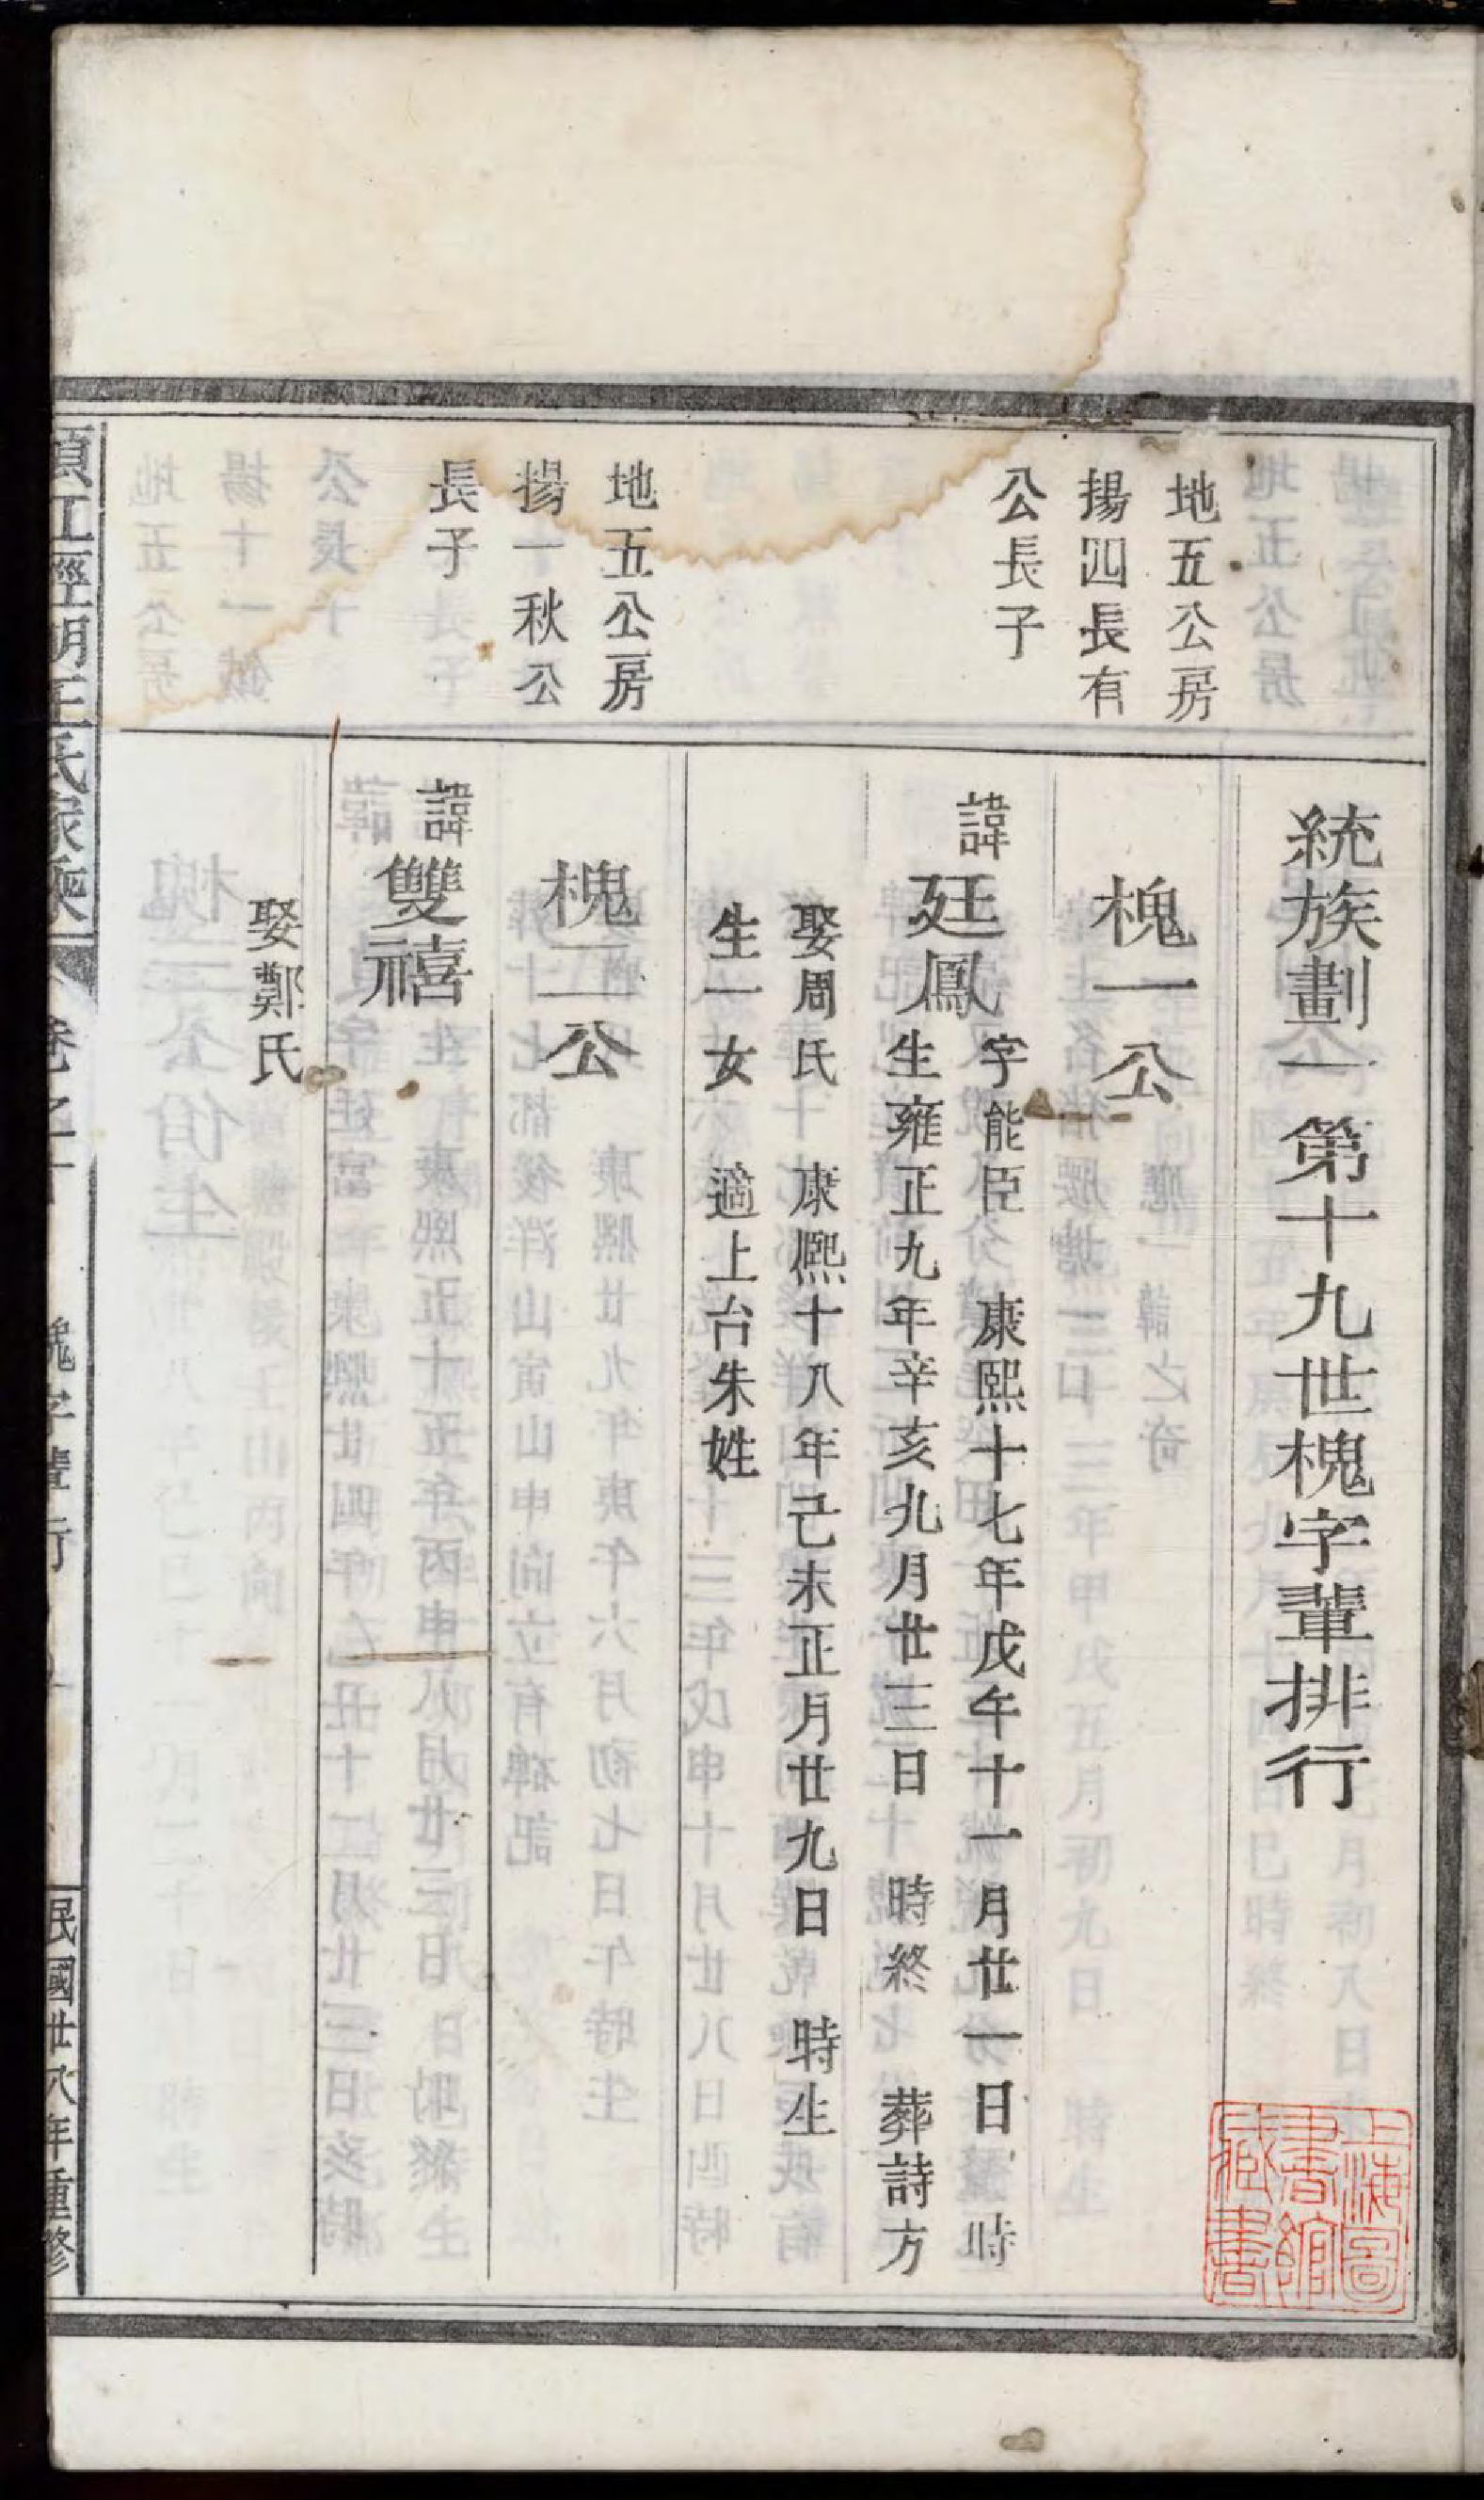 統族劃一第十九世槐字輩排行
地五公房
揚四長有
公長子
槐一公
諱廷鳳
字能臣 康熙十七年戊午十一月廿一日 時
生雍正九年辛亥九月廿三日 時終 葬詩方
娶周氏 康熙十八年己未正月廿九日 時生
生一女 適上台朱姓
地五公房
揚一秋公
長子
槐二公
諱雙禧
娶鄭氏
王氏家乘 卷之十 槐字輩行
民國廿八年重修
上海圖書館藏書